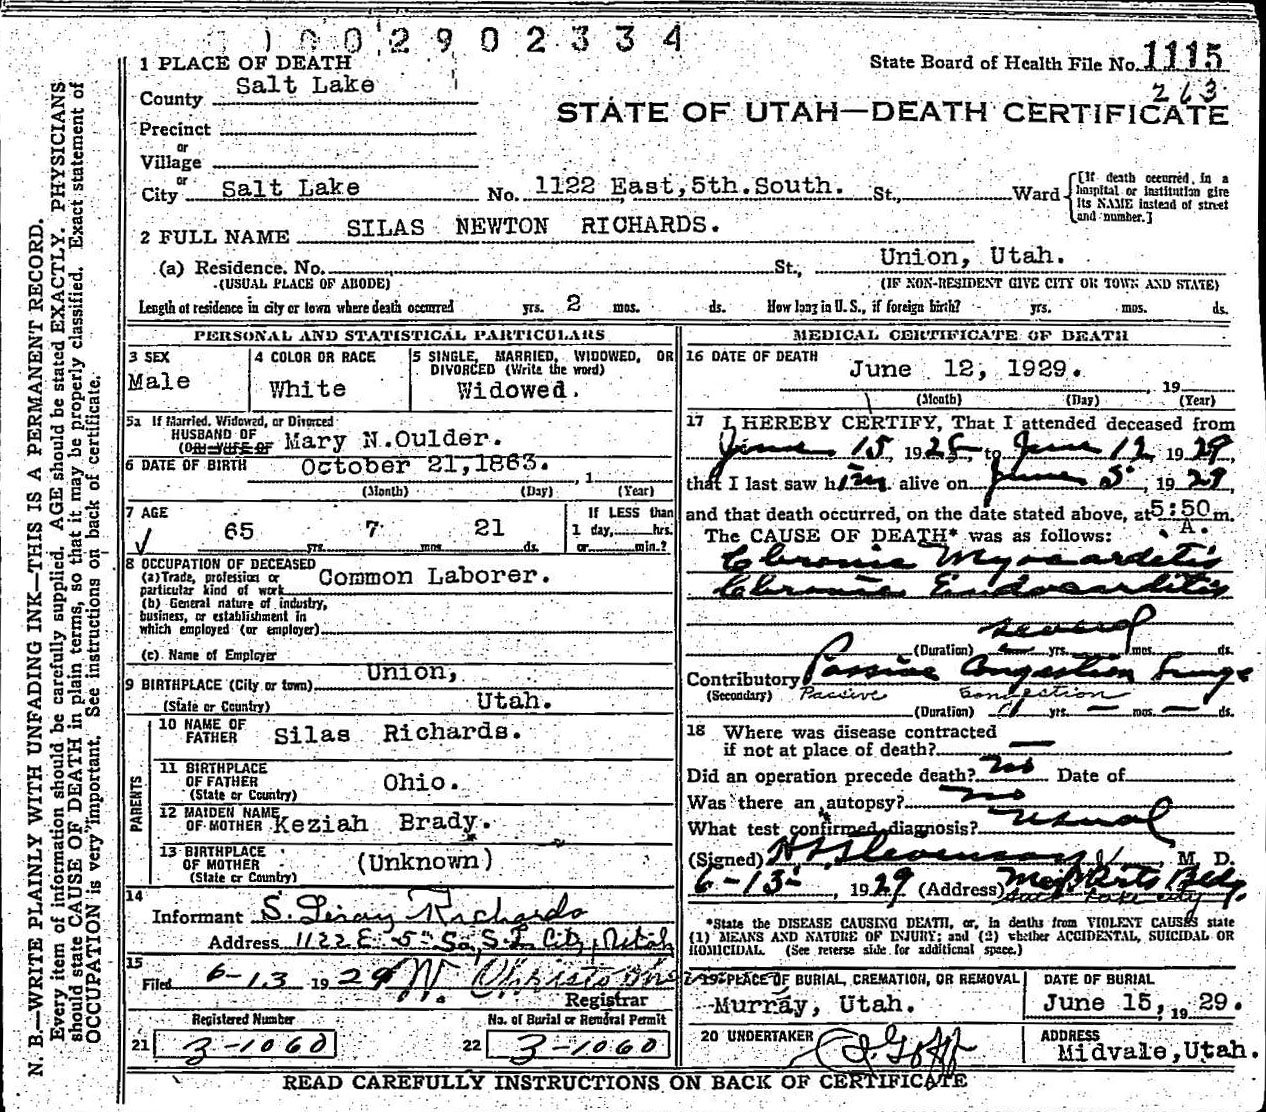 0002902334
1 PLACE OF DEATH
State Board of Health File No. 1115
263
County Salt Lake
STATE OF UTAH—DEATH CERTIFICATE
Precinct
or
Village
or
City Salt Lake No. 1122 East, 5th. South. St., Ward
[If death occurred in a
hospital or institution give
its NAME instead of street
and number.]
2 FULL NAME SILAS NEWTON RICHARDS.
(a) Residence. No. St., Union, Utah.
(USUAL PLACE OF ABODE) (IF NON-RESIDENT GIVE CITY OR TOWN AND STATE)
Length of residence in city or town where death occurred yrs. 2 mos. ds. How long in U. S., if foreign birth? yrs. mos. ds.
PERSONAL AND STATISTICAL PARTICULARS
3 SEX
Male
4 COLOR OR RACE
White
5 SINGLE, MARRIED, WIDOWED, OR
DIVORCED (Write the word)
Widowed.
5a If Married, Widowed, or Divorced
HUSBAND OF
(OR WIFE OF Mary N.Oulder.
6 DATE OF BIRTH October 21,1863. , 1
(Month) (Day) (Year)
7 AGE
65 yrs. 7 mos. 21 ds.
If LESS than
1 day, hrs.
or min.?
8 OCCUPATION OF DECEASED
(a) Trade, profession or
particular kind of work Common Laborer.
(b) General nature of industry,
business, or establishment in
which employed (or employer)
(c) Name of Employer
9 BIRTHPLACE (City or town) Union,
(State or Country) Utah.
PARENTS
10 NAME OF
FATHER Silas Richards.
11 BIRTHPLACE
OF FATHER
(State or Country) Ohio.
12 MAIDEN NAME
OF MOTHER Keziah Brady.
13 BIRTHPLACE
OF MOTHER
(State or Country) (Unknown)
14
Informant S. Leroy Richards
Address 1122 E. 5th So, S. L. City, Utah
15
Filed 6-13 1929 W. Christopher
Registrar
Registered Number
21 3-1060
No. of Burial or Removal Permit
22 3-1060
MEDICAL CERTIFICATE OF DEATH
16 DATE OF DEATH
June 12, 1929. 19
(Month) (Day) (Year)
17 I HEREBY CERTIFY, That I attended deceased from
June 15, 1928, to June 12, 1929,
that I last saw him alive on June 5, 1929,
and that death occurred, on the date stated above, at 5:50 m.
A.
The CAUSE OF DEATH* was as follows:
Chronic Myocarditis
Chronic Endocarditis
several
(Duration) yrs. mos. ds.
Contributory Passive Congestion Lungs
(Secondary) Passive Congestion
(Duration) yrs. — mos. — ds.
18 Where was disease contracted
if not at place of death? —
Did an operation precede death? no Date of
Was there an autopsy? no
What test confirmed diagnosis? usual
(Signed) Stevenson, M. D.
6-13-, 1929 (Address) Bldg.
Salt Lake City
*State the DISEASE CAUSING DEATH, or, in deaths from VIOLENT CAUSES state
(1) MEANS AND NATURE OF INJURY; and (2) whether ACCIDENTAL, SUICIDAL OR
HOMICIDAL. (See reverse side for additional space.)
19 PLACE OF BURIAL, CREMATION, OR REMOVAL
Murray, Utah.
DATE OF BURIAL
June 15, 1929.
20 UNDERTAKER
Goff
ADDRESS
Midvale, Utah.
READ CAREFULLY INSTRUCTIONS ON BACK OF CERTIFICATE
N. B.—WRITE PLAINLY WITH UNFADING INK—THIS IS A PERMANENT RECORD.
Every item of information should be carefully supplied. AGE should be stated EXACTLY. PHYSICIANS
should state CAUSE OF DEATH in plain terms, so that it may be properly classified. Exact statement of
OCCUPATION is very important. See instructions on back of certificate.